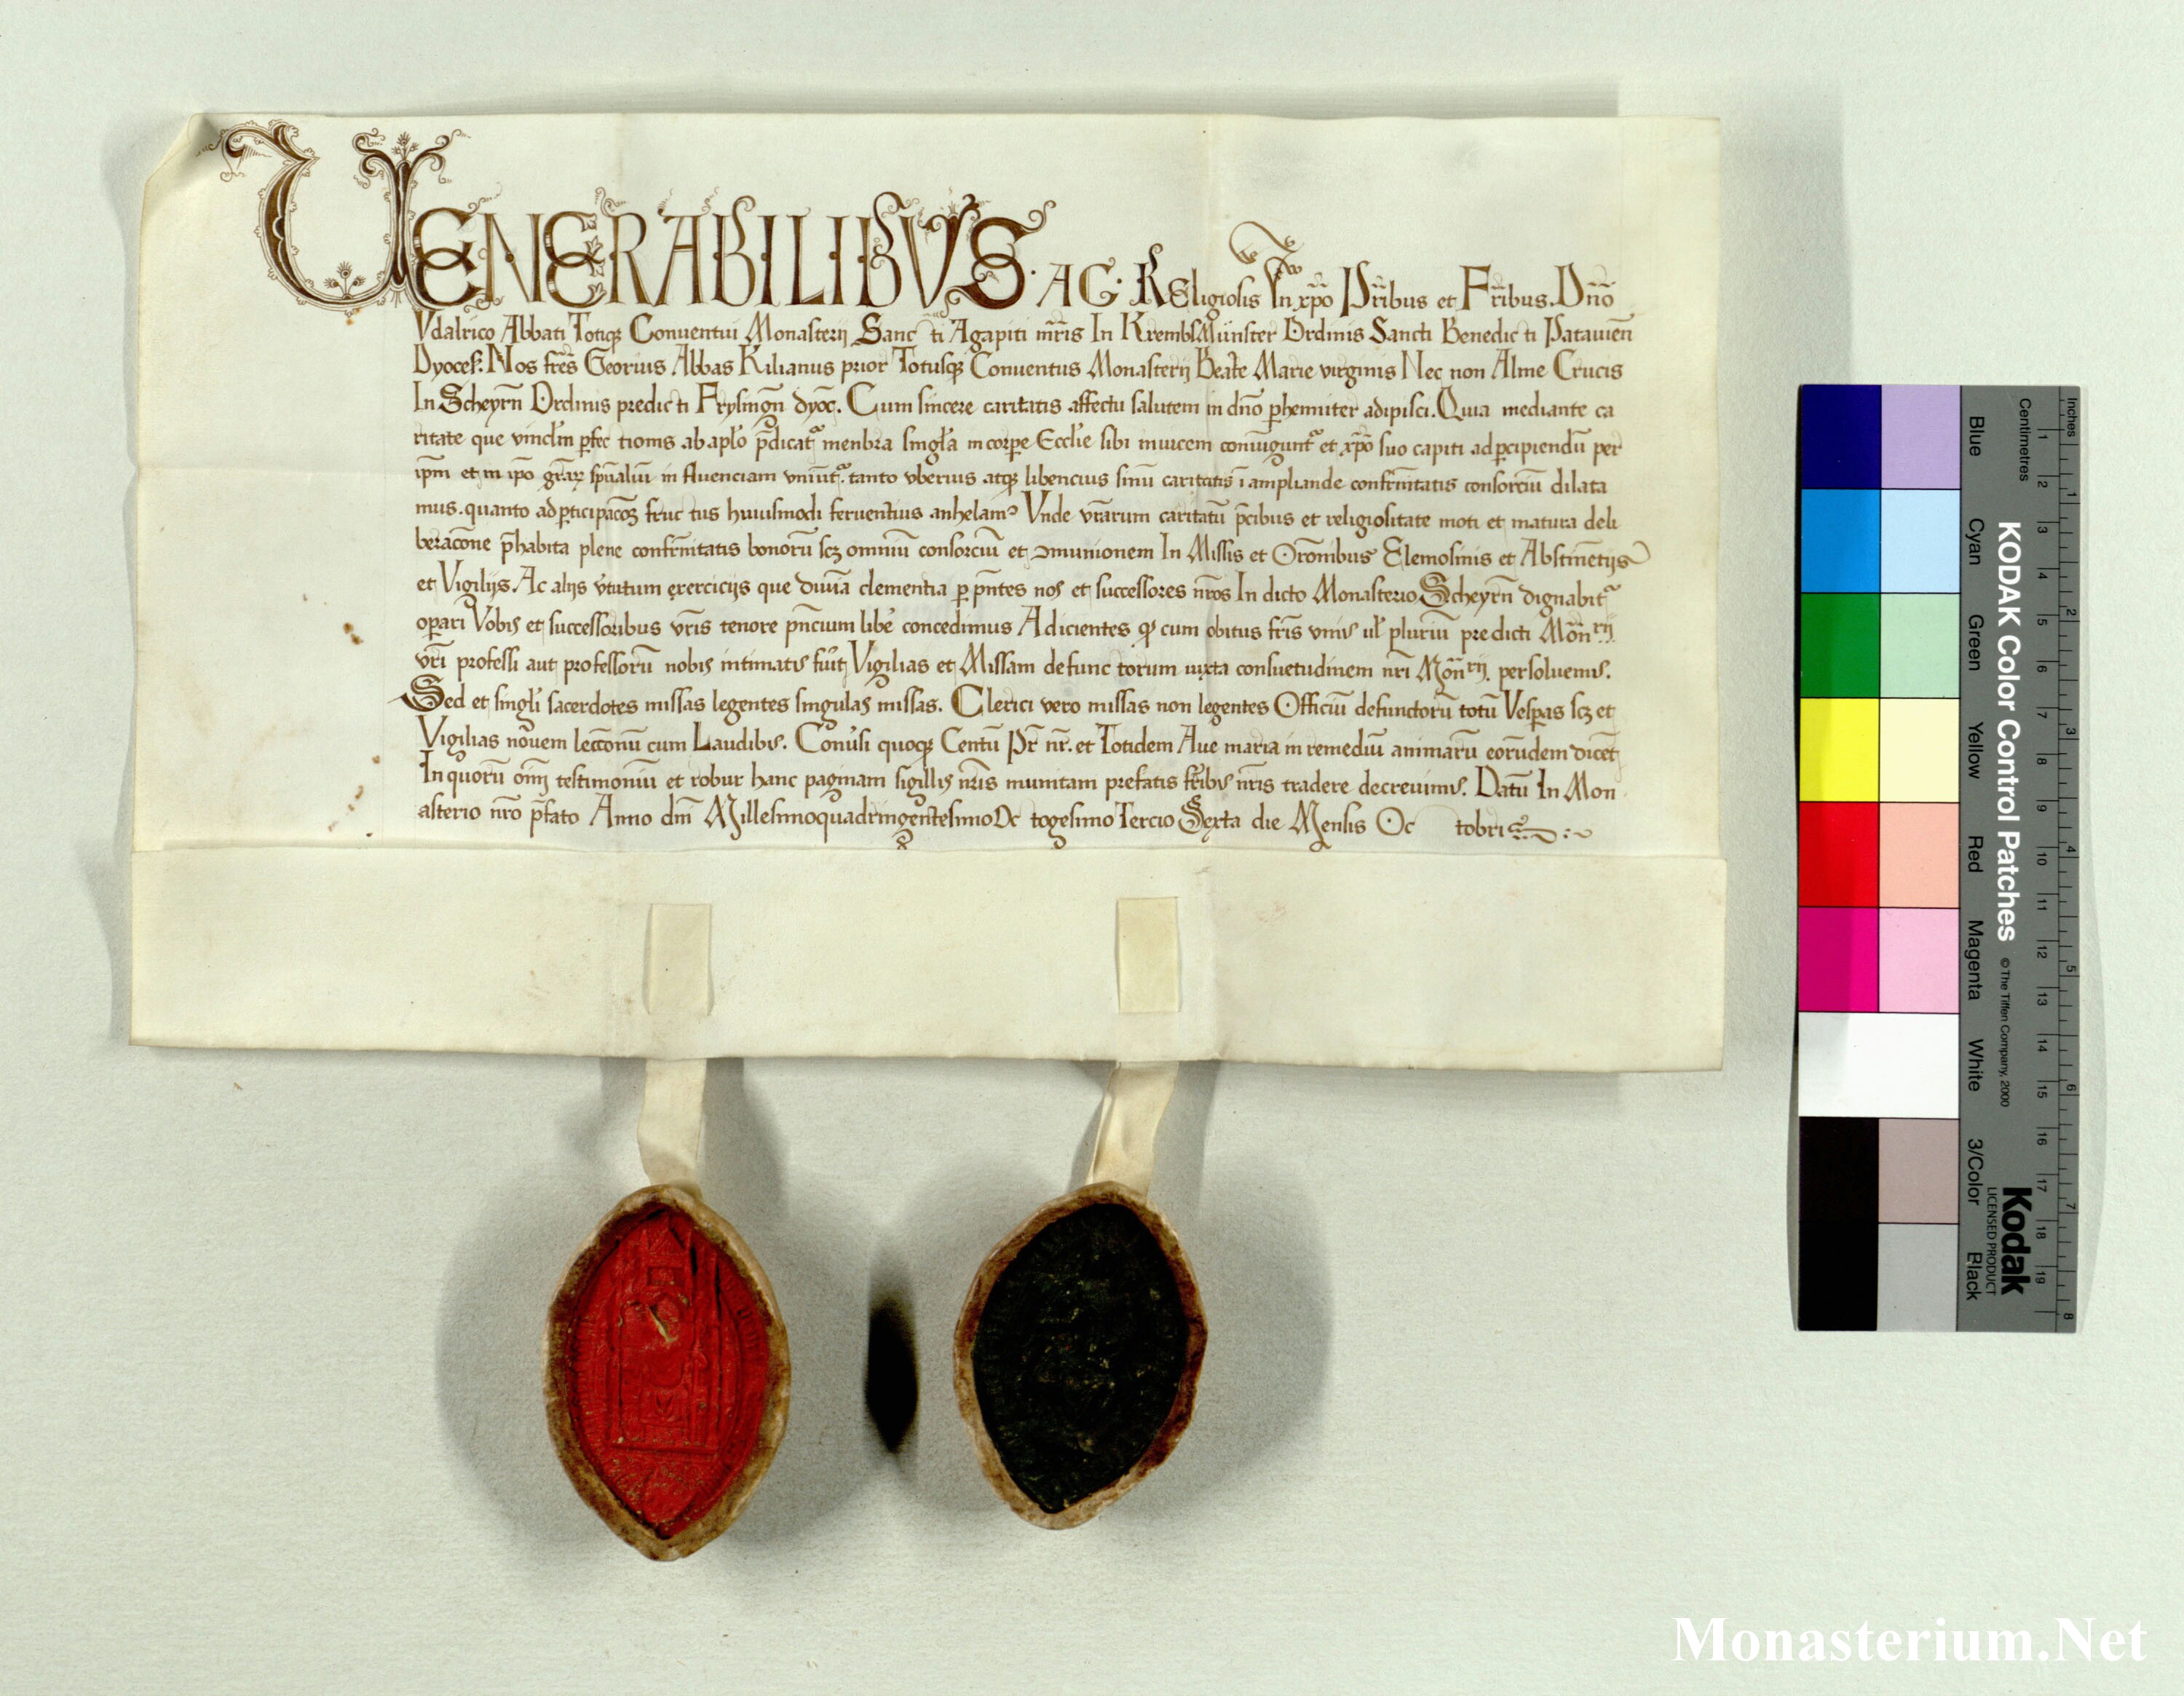 VENERABILIBVS. AC. REligiosis In xp̄o Pr̄ibus et Fr̄ibus. Dn̄o
Vdalrico Abbati Totiqꝫ Conuentui Monasterij Sancti Agapiti mr̄is In KremblMünster Ordinis Sancti Benedicti Patauien̄
Dyoces. Nos frēs Georius Abbas Kilianus prior Totusqꝫ Conuentus Monasterij Beate Marie virginis Nec non Alme Crucis
In Scheyrn̄ Ordinis predicti Frysingn̄ dyoc̄. Cum sincere caritatis affectu salutem in dn̄o ꝑhenniter adipisci. Quia mediante ca
ritate que vincl̄m ꝑfectionis ab apl̄o p̄dicatᷣ menbra singl̄a in corꝑe Eccl̄ie sibi inuicem coniūguntᷣ et xp̄o suo capiti ad ꝑcipiendū per
ip̄m et in ip̄o gr̄aꝝ sp̄ualiū influenciam vniūtᷣ. tanto vberius atqꝫ libencius sinū caritatis ī ampliande confr̄nitatis consorciū dilata
mus. quanto ad ꝑticipac̄oꝫ fructus huiusmodi feruentius anhelamꝰ Vnde vr̄arum caritatū p̄cibus et religiositate moti et matura deli
berac̄one p̄habita plene confr̄nitatis bonorū scꝫ omniū consorciū et ꝯmunionem In Missis et Orōnibus Elemosinis et Abstinētijs
et Vigilijs. Ac alijs v̄tutum exercicijs que diuīa clementia ꝑ pn̄tes nos et successores nr̄os In dicto Monasterio Scheyrn̄ dignabitᷣ
oꝑari Vobis et successoribus vr̄is tenore pn̄cium libe̾ concedimus Adicientes qꝫ cum obitus fr̄is vniꝰ ul̄ pluriū predicti Mōn̄rij
vr̄i professi aut professorū nobis intimatꝰ fu̾it Vigilias et Missam defunctorum iuxta consuetudinem nr̄i Mōn̄rij. persoluemꝰ.
Sed et singl̄i sacerdotes missas legentes singulas missas. Clerici vero missas non legentes Officiū defunctorū totū Vesꝑas scꝫ et
Vigilias nouem lecc̄onū cum Laudibꝰ. Conu̾si quoqꝫ Centū Pr̄ nr̄. et Totidem Aue maria in remediū animarū eorūdem dicēt
In quorū oīm testimoniū et robur hanc paginam sigillis nr̄is munitam prefatis fr̄ibꝰ nr̄is tradere decreuimꝰ. Datū In Mon
asterio nr̄o p̄fato Anno dn̄i MillesimoquadringentesimoOctogesimo Tercio Sexta die Mensis Octobris
Inches
Centimetres
1 2 3 4 5 6 7 8
1 2 3 4 5 6 7 8 9 10 11 12 13 14 15 16 17 18 19
KODAK Color Control Patches © The Tiffen Company, 2000
Kodak
LICENSED PRODUCT
Blue Cyan Green Yellow Red Magenta White 3/Color Black
Monasterium.Net